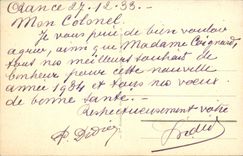 27.12.33.
Mon Colonel
Je vous prie de bien vouloir
agréer, ainsi que Madame Coignard,
tous nos meilleurs souhaits de
bonheur pour cette nouvelle
année 1934 et tous nos voeux
de bonne santé.
Respectueusement votre